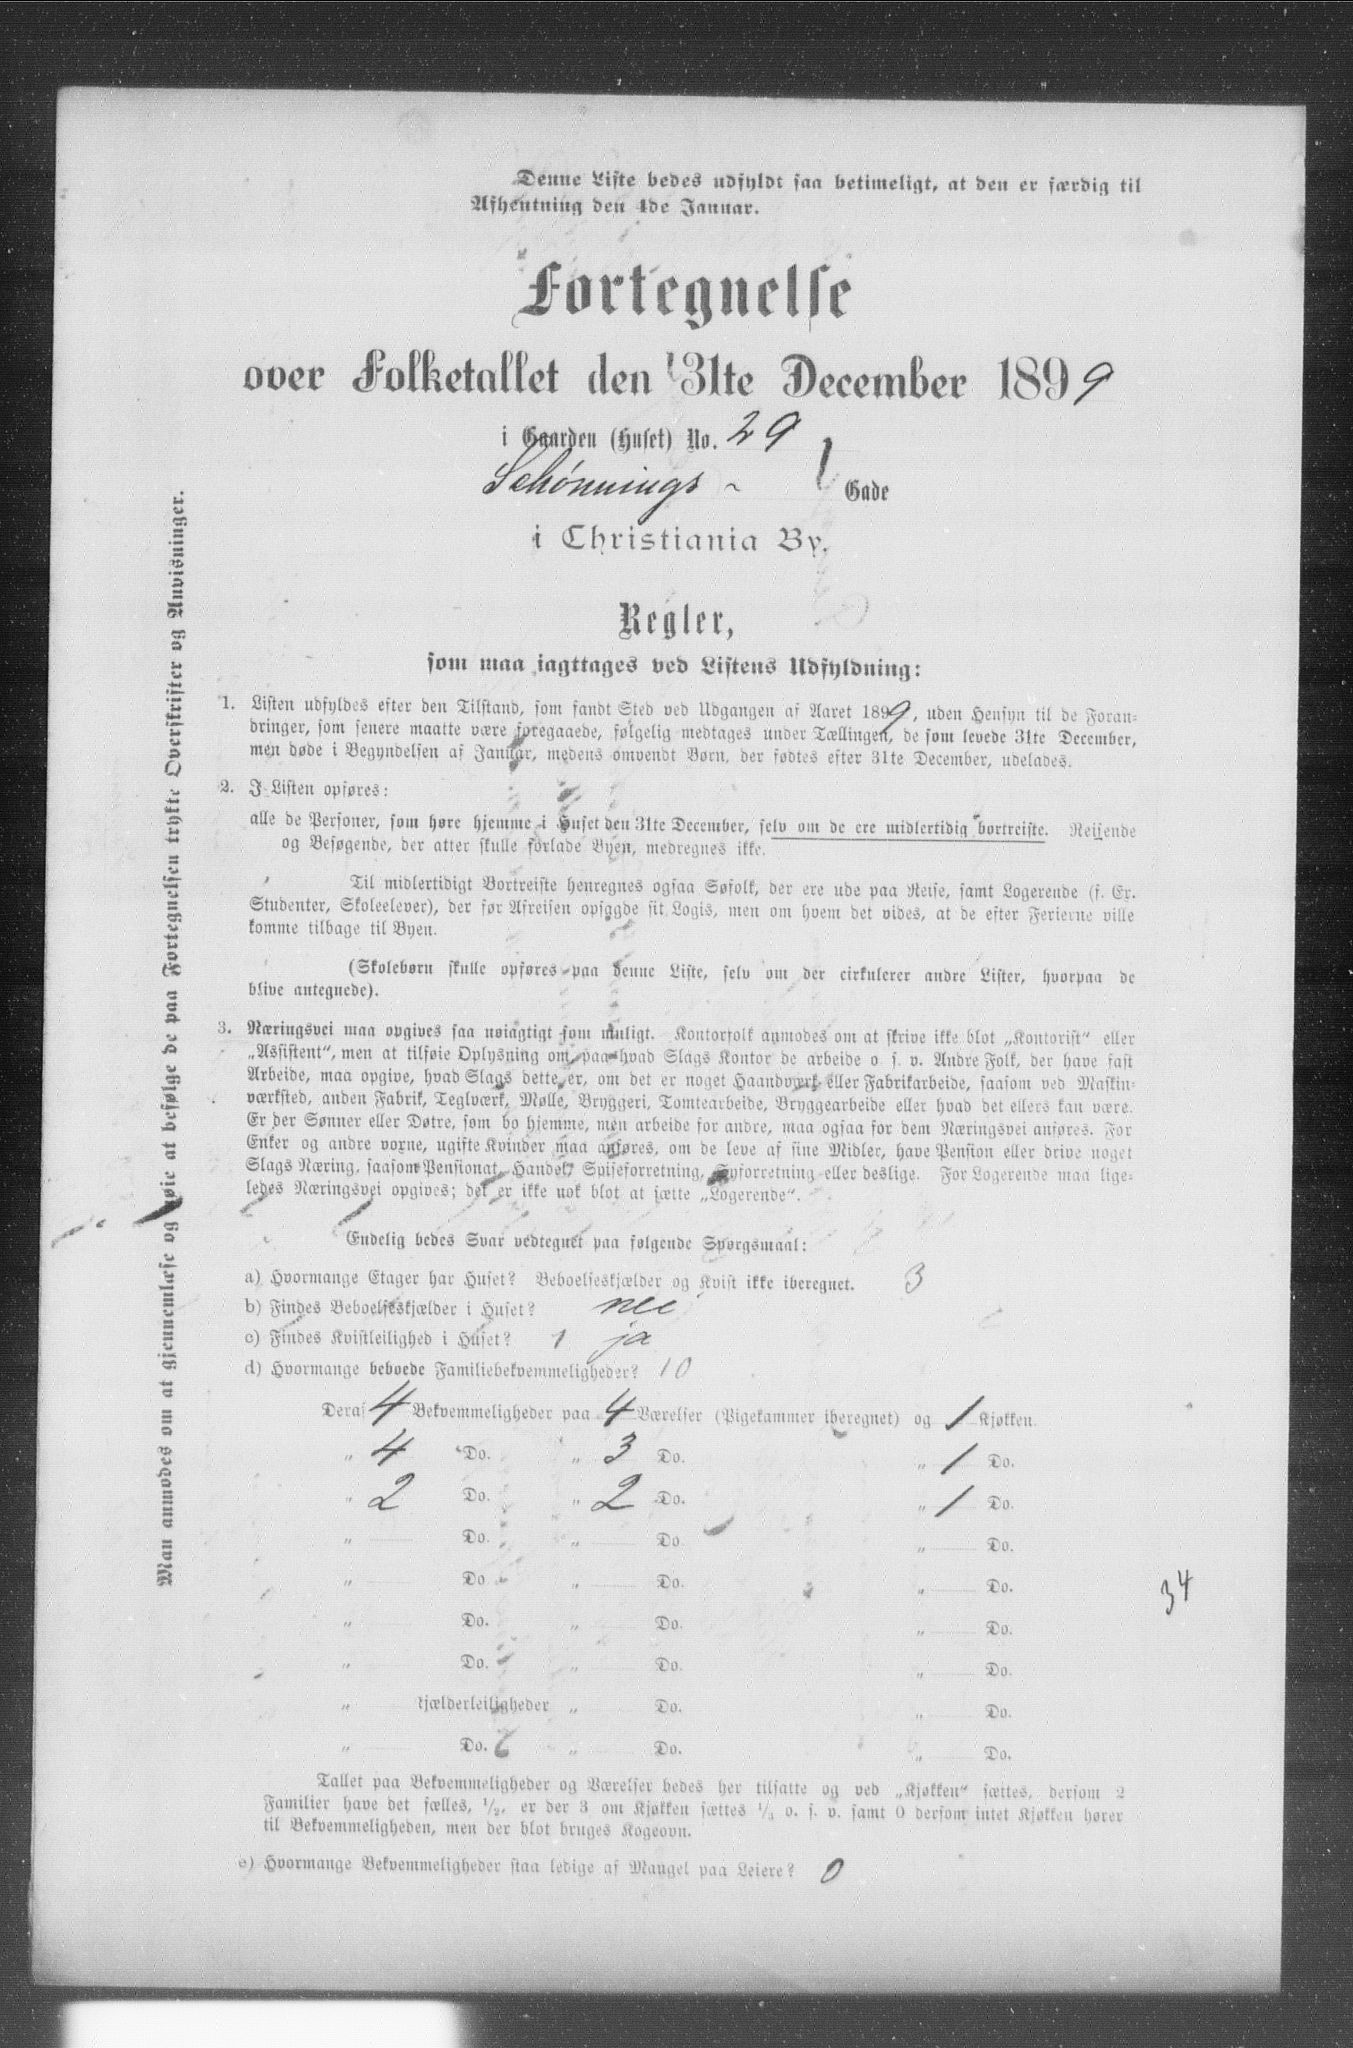 Denne Liste bedes udfyldt saa betimeligt, at den er færdig til
Afhentning den 4de Januar.
Fortegnelse
over Folketallet den 31te December 1899
i Gaarden (Huset) No. 29
Schønnings - Gade
i Christiania By.
Regler,
som maa iagttages ved Listens Udfyldning:
1. Listen udfyldes efter den Tilstand, som fandt Sted ved Udgangen af Aaret 1899, uden Hensyn til de Foran-
dringer, som senere maatte være foregaaede, følgelig medtages under Tællingen, de som levede 31te December,
men døde i Begyndelsen af Januar, medens omvendt Børn, der fødtes efter 31te December, udelades.
2. I Listen opføres:
alle de Personer, som høre hjemme i Huset den 31te December, selv om de ere midlertidig bortreiste. Reisende
og Besøgende, der atter skulle forlade Byen, medregnes ikke.
Til midlertidigt Bortreiste henregnes ogsaa Søfolk, der ere ude paa Reise, samt Logerende (f. Ex.
Studenter, Skoleelever), der før Afreisen opsagde sit Logis, men om hvem det vides, at de efter Ferierne ville
komme tilbage til Byen.
(Skolebørn skulle opføres paa denne Liste, selv om der cirkulerer andre Lister, hvorpaa de
blive antegnede).
3. Næringsvei maa opgives saa nøiagtigt som muligt. Kontorfolk anmodes om at skrive ikke blot „Kontorist“ eller
„Assistent“, men at tilføie Oplysning om, paa hvad Slags Kontor de arbeide o. s. v. Andre Folk, der have fast
Arbeide, maa opgive, hvad Slags dette er, om det er noget Haandværk eller Fabrikarbeide, saasom ved Maskin-
værksted, anden Fabrik, Teglværk, Mølle, Bryggeri, Tomtearbeide, Bryggearbeide eller hvad det ellers kan være.
Er der Sønner eller Døtre, som bo hjemme, men arbeide for andre, maa ogsaa for dem Næringsvei anføres. For
Enker og andre voxne, ugifte Kvinder maa anføres, om de leve af sine Midler, have Pension eller drive noget
Slags Næring, saasom Pensionat, Handel, Spiseforretning, Syforretning eller deslige. For Logerende maa lige-
ledes Næringsvei opgives; det er ikke nok blot at sætte „Logerende“.
Endelig bedes Svar vedtegnet paa følgende Spørgsmaal:
a) Hvormange Etager har Huset? Beboelseskjælder og Kvist ikke iberegnet. 3
b) Findes Beboelseskjælder i Huset? nei
c) Findes Kvistleilighed i Huset? 1 ja
d) Hvormange beboede Familiebekvemmeligheder? 10
Deraf 4 Bekvemmeligheder paa 4 Værelser (Pigekammer iberegnet) og 1 Kjøkken.
„ 4 Do. „ 3 Do. „ 1 Do.
„ 2 Do. „ 2 Do. „ 1 Do.
„ Do. „ Do. „ Do.
„ Do „ Do. „ Do.
„ Do. „ Do. „ Do.
„ Do. „ Do. „ Do.
„ Kjælderleiligheder „ Do. „ Do.
„ Do. „ Do. „ Do.
Tallet paa Bekvemmeligheder og Værelser bedes her tilsatte og ved „Kjøkken“ sættes, dersom 2
Familier have det fælles, 1/2, er der 3 om Kjøkken sættes 1/3 o. s. v. samt 0 dersom intet Kjøkken hører
til Bekvemmeligheden, men der blot bruges Kogeovn.
e) Hvormange Bekvemmeligheder staa ledige af Mangel paa Leiere? 0
34
Man anmodes om at gjennemlæse og nøie at befølge de paa Fortegnelsen trykte Overskrifter og Anvisninger.